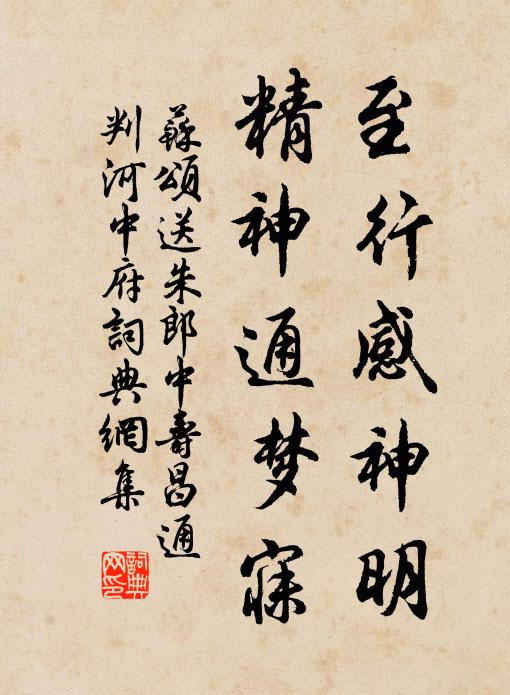 至行感神明
精神通梦寐
蘇頌送朱郎中壽昌通
判河中府詞典網集
詞典
网印